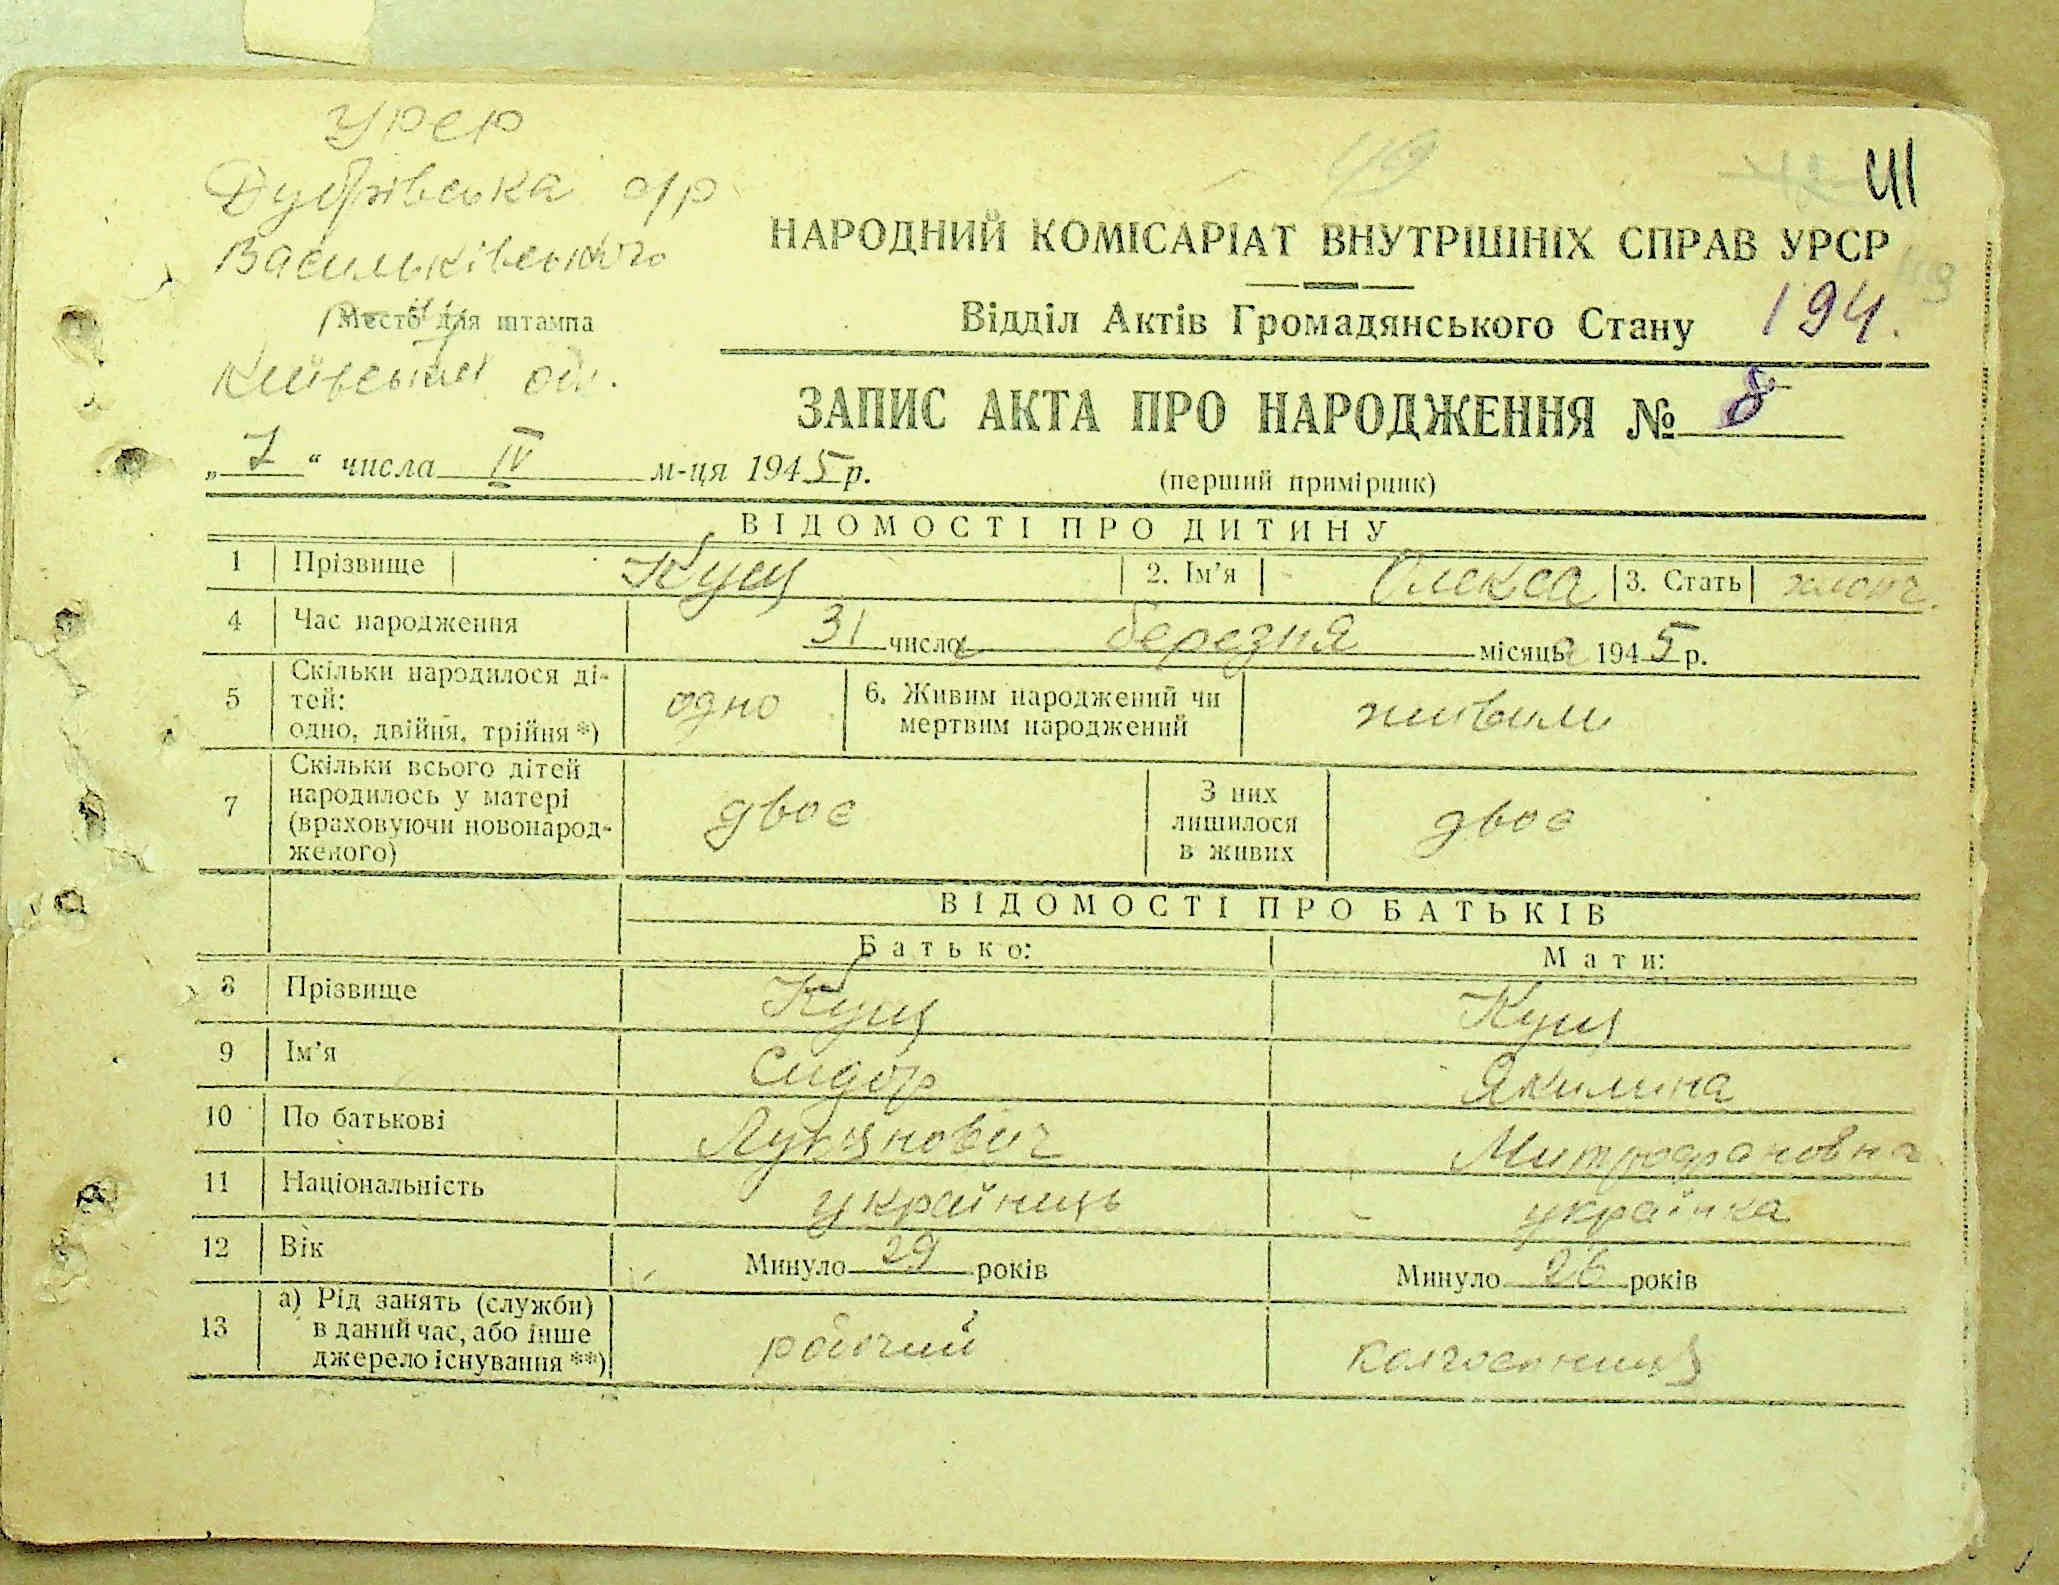 УРСР
Дубрівська с/р
Васильківського
Место для штампа
Київської обл.
49
42 41
НАРОДНИЙ КОМІСАРІАТ ВНУТРІШНІХ СПРАВ УРСР
Відділ Актів Громадянського Стану 194.
ЗАПИС АКТА ПРО НАРОДЖЕННЯ № 8
„ 7 “ числа IV м-ця 1945 р. (перший примірник)
ВІДОМОСТІ ПРО ДИТИНУ
1 Прізвище Кущ 2. Ім’я Олекса 3. Стать хлопч.
4 Час народження 31 числа березня місяця 1945 р.
5 Скільки народилося ді-
тей:
одно, двійня, трійня*) одно 6. Живим народжений чи
мертвим народжений живим
7 Скільки всього дітей
народилось у матері
(враховуючи новонарод-
женого) двоє З них
лишилося
в живих двоє
ВІДОМОСТІ ПРО БАТЬКІВ
Батько: Мати:
8 Прізвище Кущ Кущ
9 Ім’я Сидор Якилина
10 По батькові Лук'янович Митрофановна
11 Національність українець українка
12 Вік Минуло 29 років Минуло 26 років
13 а) Рід занять (служби)
в даний час, або інше
джерело існування **) робочий колгоспниця